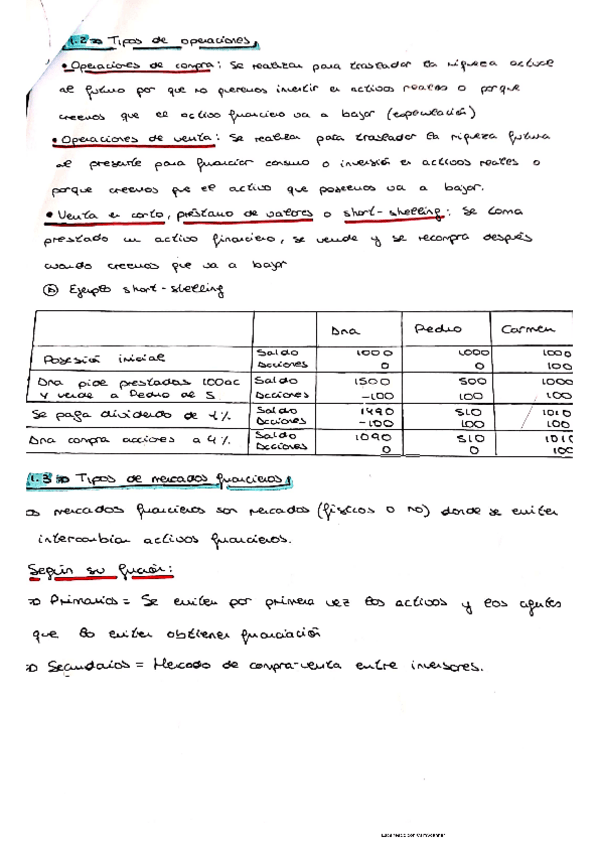 1.2 => Tipos de operaciones
• Operaciones de compra: Se realizan para trasladar la riqueza actual
al futuro por que no queremos invertir en activos reales o porque
creemos que el activo financiero va a bajar (especulación)
• Operaciones de venta: Se realizan para trasladar la riqueza futura
al presente para financiar consumo o inversión en activos reales o
porque creemos que el activo que poseemos va a bajar.
• Venta en corto, préstamo de valores o short-shelling: Se toma
prestado un activo financiero, se vende y se recompra después
cuando creemos que va a bajar
Ejemplo short-shelling
Ana Pedro Carmen
Posesión inicial Saldo 1000 1000 1000
Acciones 0 0 100
Ana pide prestadas 100ac Saldo 1500 500 1000
y vende a Pedro al 5 Acciones -100 100 100
Se paga dividendo de 1% Saldo 1490 510 1010
Acciones -100 100 100
Ana compra acciones a 4% Saldo 1090 510 101
Acciones 0 0 100
1.3 => Tipos de mercados financieros
=> mercados financieros son mercados (físicos o no) donde se emiten
intercambian activos financieros.
Según su función:
=> Primarios = Se emiten por primera vez los activos y los agentes
que lo emiten obtienen financiación
=> Secundarios = Mercado de compra-venta entre inversores.